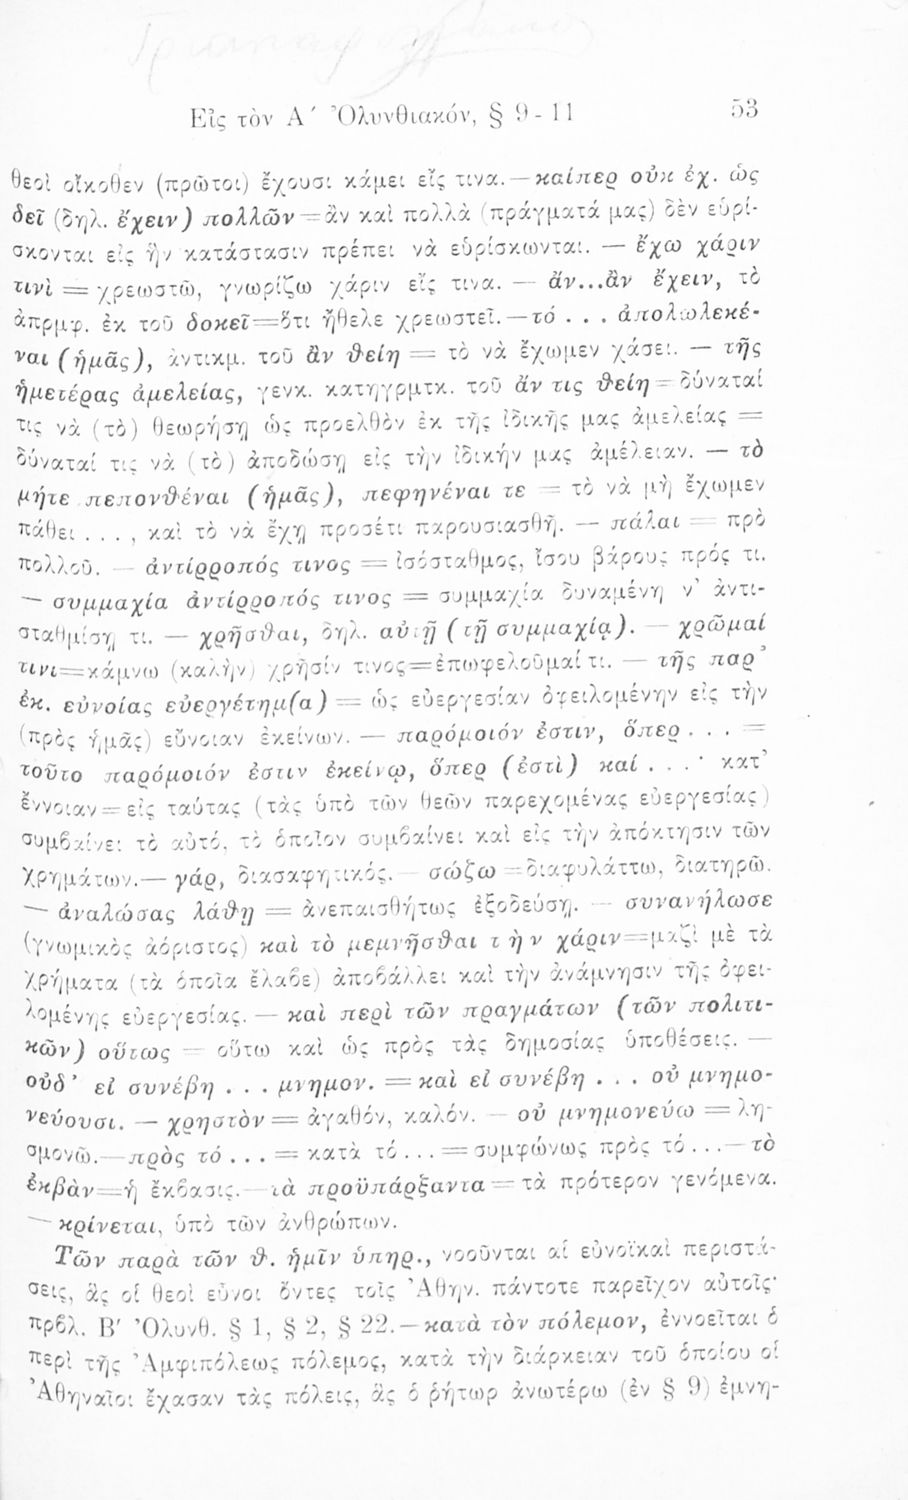 Εἰς τὸν Α΄ Ὀλυνθιακόν, § 9 - 11 53
θεοὶ οἴκοθεν (πρῶτοι) ἔχουσι κάμει εἴς τινα. — καίπερ οὐκ ἐχ. ὡς
δεῖ (δηλ. ἔχειν) πολλῶν = ἂν καὶ πολλὰ (πράγματά μας) δὲν εὑρί-
σκονται εἰς ἣν κατάστασιν πρέπει νὰ εὑρίσκωνται. — ἔχω χάριν
τινὶ = χρεωστῶ, γνωρίζω χάριν εἴς τινα. — ἄν...ἂν ἔχειν, τὸ
ἀπρμφ. ἐκ τοῦ δοκεῖ = ὅτι ἤθελε χρεωστεῖ. — τό . . . ἀπολωλεκέ-
ναι (ἡμᾶς), ἀντικμ. τοῦ ἂν θείη = τὸ νὰ ἔχωμεν χάσει. — τῆς
ἡμετέρας ἀμελείας, γενκ. κατηγρμτκ. τοῦ ἄν τις θείη = δύναταί
τις νὰ (τὸ) θεωρήσῃ ὡς προελθὸν ἐκ τῆς ἰδικῆς μας ἀμελείας =
δύναταί τις νὰ (τὸ) ἀποδώσῃ εἰς τὴν ἰδικήν μας ἀμέλειαν. — τὸ
μήτε πεπονθέναι (ἡμᾶς), πεφηνέναι τε = τὸ νὰ μὴ ἔχωμεν
πάθει . . . , καὶ τὸ νὰ ἔχῃ προσέτι παρουσιασθῆ. — πάλαι = πρὸ
πολλοῦ. — ἀντίρροπός τινος = ἰσόσταθμος, ἴσου βάρους πρός τι.
— συμμαχία ἀντίρροπός τινος = συμμαχία δυναμένη ν᾽ ἀντι-
σταθμίσῃ τι. — χρῆσθαι, δηλ. αὐτῇ (τῇ συμμαχίᾳ). — χρῶμαί
τινι = κάμνω (καλὴν) χρῆσίν τινος = ἐπωφελοῦμαί τι. — τῆς παρ᾽
ἐκ. εὐνοίας εὐεργέτημ(α) = ὡς εὐεργεσίαν ὀφειλομένην εἰς τὴν
(πρὸς ἡμᾶς) εὔνοιαν ἐκείνων. — παρόμοιόν ἐστιν, ὅπερ . . . =
τοῦτο παρόμοιόν ἐστιν ἐκείνῳ, ὅπερ (ἐστὶ) καί . . .· κατ᾽
ἔννοιαν = εἰς ταύτας (τὰς ὑπὸ τῶν θεῶν παρεχομένας εὐεργεσίας)
συμβαίνει τὸ αὐτό, τὸ ὁποῖον συμβαίνει καὶ εἰς τὴν ἀπόκτησιν τῶν
χρημάτων. — γάρ, διασαφητικός. — σώζω = διαφυλάττω, διατηρῶ.
— ἀναλώσας λάθῃ = ἀνεπαισθήτως ἐξοδεύσῃ. — συνανήλωσε
(γνωμικὸς ἀόριστος) καὶ τὸ μεμνῆσθαι τὴν χάριν = μαζὶ μὲ τὰ
χρήματα (τὰ ὁποῖα ἔλαβε) ἀποβάλλει καὶ τὴν ἀνάμνησιν τῆς ὀφει-
λομένης εὐεργεσίας. — καὶ περὶ τῶν πραγμάτων (τῶν πολιτι-
κῶν) οὕτως = οὕτω καὶ ὡς πρὸς τὰς δημοσίας ὑποθέσεις. —
οὐδ᾽ εἰ συνέβη . . . μνημον. = καὶ εἰ συνέβη . . . οὐ μνημο-
νεύουσι. — χρηστὸν = ἀγαθόν, καλόν. — οὐ μνημονεύω = λη-
σμονῶ. — πρὸς τό . . . = κατὰ τό . . . = συμφώνως πρὸς τό . . . — τὸ
ἐκβὰν = ἡ ἔκβασις. — τὰ προϋπάρξαντα = τὰ πρότερον γενόμενα.
— κρίνεται, ὑπὸ τῶν ἀνθρώπων.
Τῶν παρὰ τῶν θ. ἡμῖν ὑπηρ., νοοῦνται αἱ εὐνοϊκαὶ περιστά-
σεις, ἃς οἱ θεοὶ εὖνοι ὄντες τοῖς Ἀθην. πάντοτε παρεῖχον αὐτοῖς·
πρβλ. Β΄ Ὀλυνθ. § 1, § 2, § 22. — κατὰ τὸν πόλεμον, ἐννοεῖται ὁ
περὶ τῆς Ἀμφιπόλεως πόλεμος, κατὰ τὴν διάρκειαν τοῦ ὁποίου οἱ
Ἀθηναῖοι ἔχασαν τὰς πόλεις, ἃς ὁ ῥήτωρ ἀνωτέρω (ἐν § 9) ἐμνη-